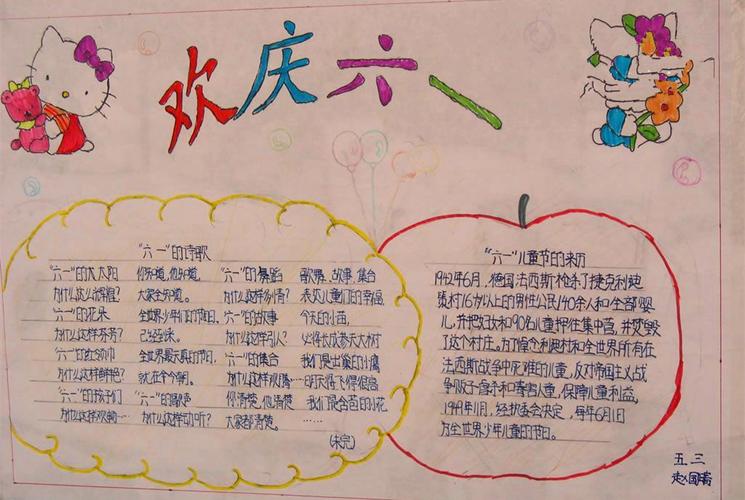 欢庆六一
"六一"的诗歌
"六一"的太阳 你知道,他知道, "六一"的舞蹈 歌舞、故事、集合
为什么这么辉煌? 大家全知道。 为什么这样多情? 表达儿童们的幸福
"六一"的花朵 全世界少年们的节日, "六一"的故事 今天的小苗,
为什么这样芬芳? 已经到来。 为什么这样引人? 必将长成参天大树
"六一"的红领巾 全世界最真的节日, "六一"的集合 我们是出巢的小鹰
为什么这样鲜艳? 就在今朝。 为什么这样欢腾… 明天将飞得很高
"六一"的孩子们 "六一"的歌声 你清楚,他清楚 我们是含苞的小花
为什么这样欢畅… 为什么这样动听? 大家都清楚。 ……
(未完)
"六一"儿童节的来历
1942年6月,德国法西斯枪杀了捷克利迪
策村16岁以上的男性公民140余人和全部婴
儿,并把妇女和90名儿童押往集中营,并焚毁
了这个村庄。为了悼念利迪村和全世界所有在
法西斯战争中死难的儿童,反对帝国主义战
争贩子虐杀和毒害儿童,保障儿童利益。
1949年11月,经执委会决定,每年6月1日
为全世界少年儿童的节日。
五三
赵国